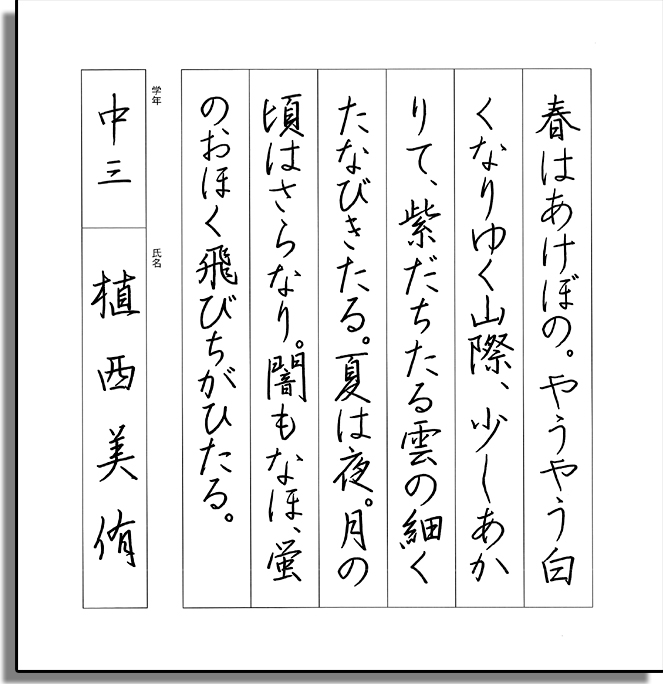 春はあけぼの。やうやう白
くなりゆく山際、少しあか
りて、紫だちたる雲の細く
たなびきたる。夏は夜。月の
頃はさらなり。闇もなほ、蛍
のおほく飛びちがひたる。
学年
中三
氏名
植西美侑